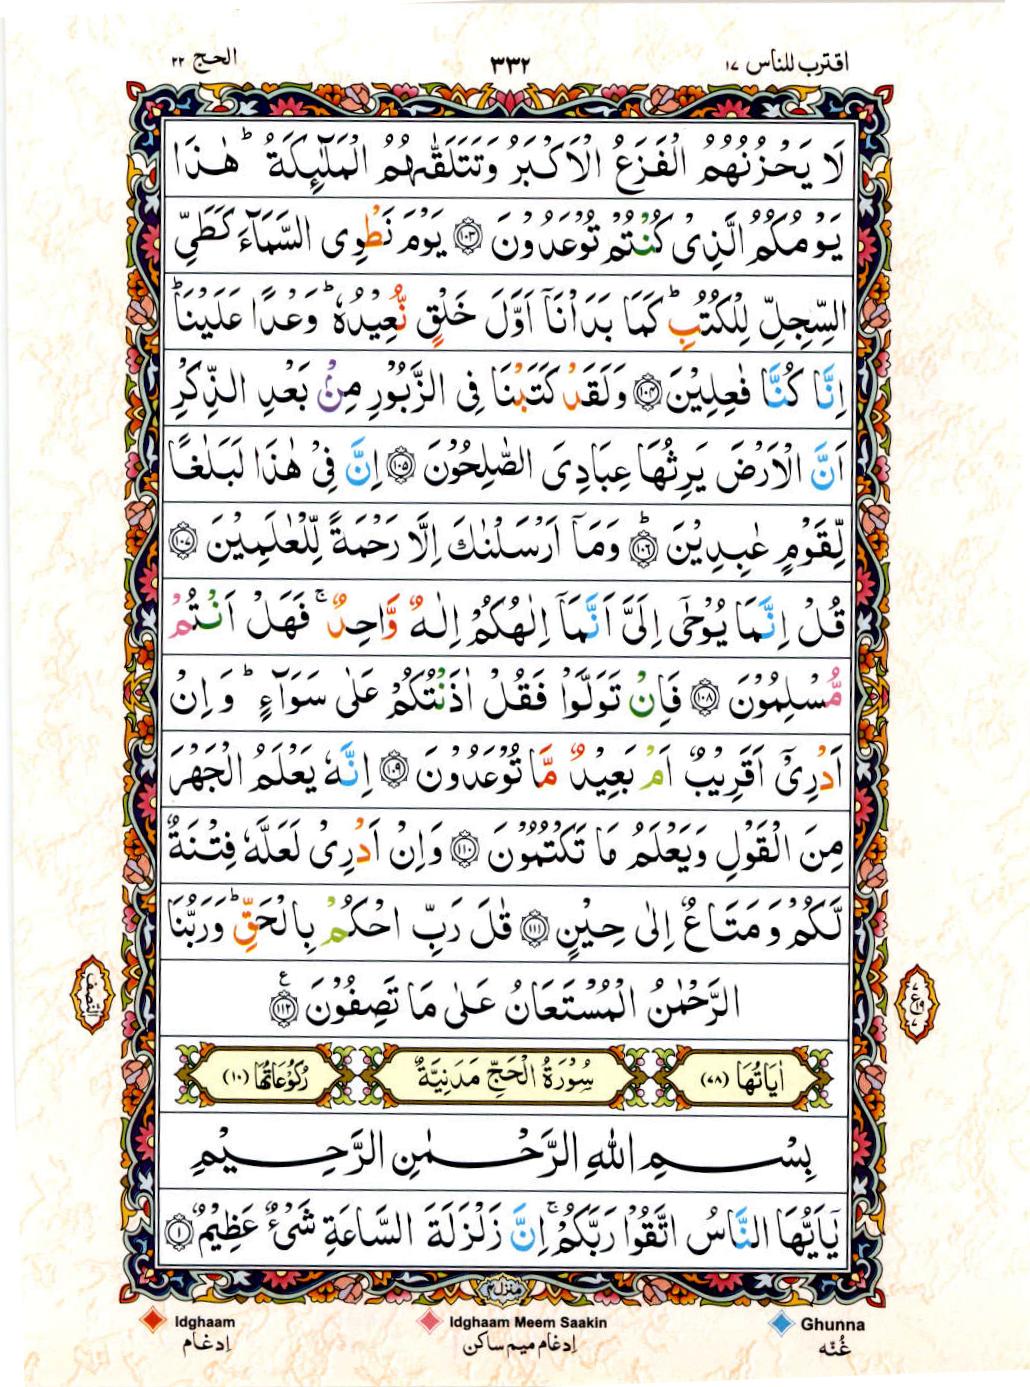 اقترب للناس ١٧
٣٣٢
الحج ٢٢
لَا يَحْزُنُهُمُ الْفَزَعُ الْاَكْبَرُ وَتَتَلَقّٰىهُمُ الْمَلٰٓئِكَةُ ؕ هٰذَا
يَوْمُكُمُ الَّذِىْ كُنْتُمْ تُوْعَدُوْنَ ﴿۱۰۳﴾ يَوْمَ نَطْوِى السَّمَآءَ كَطَىِّ
السِّجِلِّ لِلْكُتُبِ ؕ كَمَا بَدَاْنَاۤ اَوَّلَ خَلْقٍ نُّعِيْدُهٗ ؕ وَعْدًا عَلَيْنَا ؕ
اِنَّا كُنَّا فٰعِلِيْنَ ﴿۱۰۴﴾ وَلَقَدْ كَتَبْنَا فِى الزَّبُوْرِ مِنْۢ بَعْدِ الذِّكْرِ
اَنَّ الْاَرْضَ يَرِثُهَا عِبَادِىَ الصّٰلِحُوْنَ ﴿۱۰۵﴾ اِنَّ فِىْ هٰذَا لَبَلٰغًا
لِّقَوْمٍ عٰبِدِيْنَ ؕ﴿۱۰۶﴾ وَمَاۤ اَرْسَلْنٰكَ اِلَّا رَحْمَةً لِّلْعٰلَمِيْنَ ﴿۱۰۷﴾
قُلْ اِنَّمَا يُوْحٰٓى اِلَىَّ اَنَّمَاۤ اِلٰهُكُمْ اِلٰهٌ وَّاحِدٌ ۚ فَهَلْ اَنْتُمْ
مُّسْلِمُوْنَ ﴿۱۰۸﴾ فَاِنْ تَوَلَّوْا فَقُلْ اٰذَنْتُكُمْ عَلٰى سَوَآءٍ ؕ وَاِنْ
اَدْرِىْۤ اَقَرِيْبٌ اَمْ بَعِيْدٌ مَّا تُوْعَدُوْنَ ﴿۱۰۹﴾ اِنَّهٗ يَعْلَمُ الْجَهْرَ
مِنَ الْقَوْلِ وَيَعْلَمُ مَا تَكْتُمُوْنَ ﴿۱۱۰﴾ وَاِنْ اَدْرِىْ لَعَلَّهٗ فِتْنَةٌ
لَّكُمْ وَمَتَاعٌ اِلٰى حِيْنٍ ﴿۱۱۱﴾ قٰلَ رَبِّ احْكُمْ بِالْحَقِّ ؕ وَرَبُّنَا
الرَّحْمٰنُ الْمُسْتَعَانُ عَلٰى مَا تَصِفُوْنَ ﴿۱۱۲﴾ ع
النصف
اٰيَاتُهَا (٧٨)
سُوْرَةُ الْحَجِّ مَدَنِيَّةٌ
رُكُوْعَاتُهَا (١٠)
بِسْمِ اللّٰهِ الرَّحْمٰنِ الرَّحِيْمِ
يٰۤاَيُّهَا النَّاسُ اتَّقُوْا رَبَّكُمْ ۚ اِنَّ زَلْزَلَةَ السَّاعَةِ شَىْءٌ عَظِيْمٌ ﴿۱﴾
منزل٤
Idghaam
ادغام
Idghaam Meem Saakin
ادغام ميم ساكن
Ghunna
غُنّه